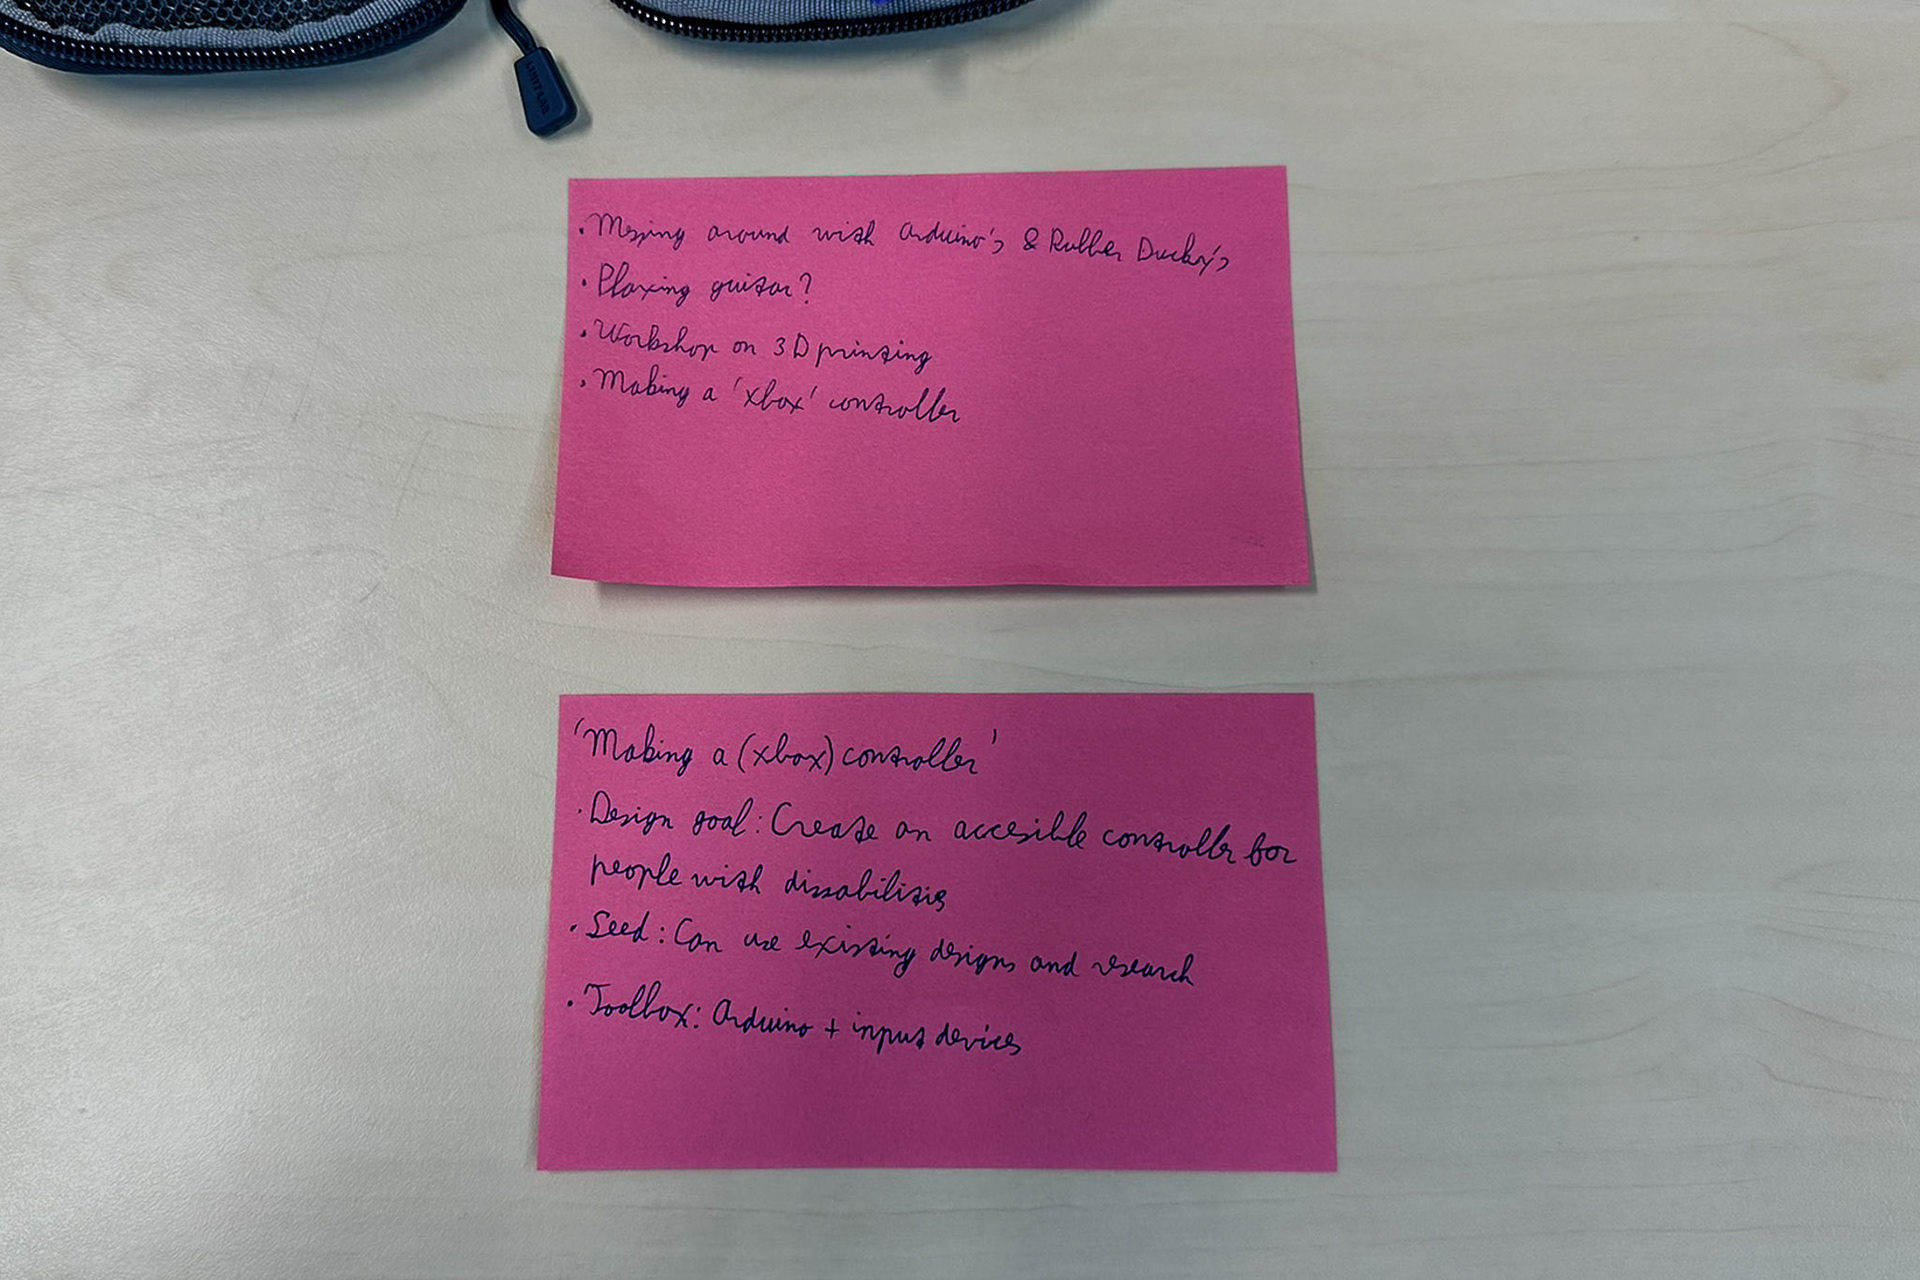 • Messing around with arduino's & Rubber Ducky's
• Playing guitar?
• Workshop on 3D printing
• Making a 'xbox' controller
'Making a (xbox) controller'
• Design goal: Create an accesible controller for
people with dissabilities
• Seed: Can use existing designs and research
• Toolbox: Arduino + input devices